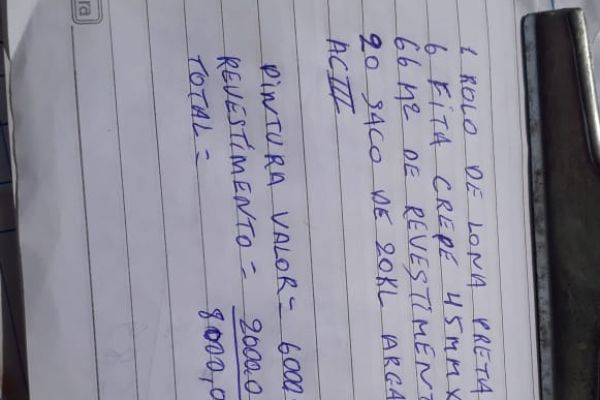 1 ROLO DE LONA PRETA
6 FITA CREPE 45MMX
66 M2 DE REVESTIMENT
20 SACO DE 20KL ARGA
ACIII
PINTURA VALOR= 6000
REVESTIMENTO = 2000,0
TOTAL = 8000,0
ra